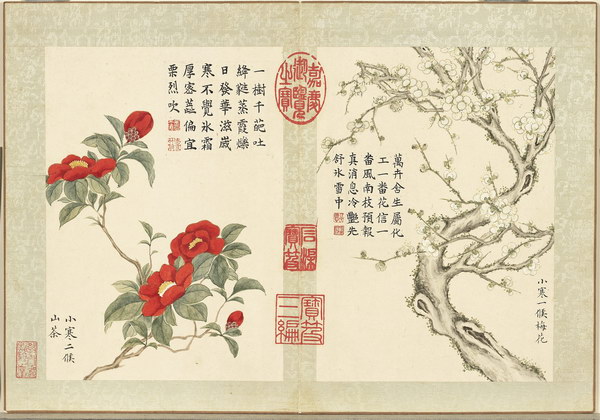 小寒一候梅花
萬卉含生屬化
工一番花信一
番風南枝預報
真消息冷艷先
舒氷雪中
嘉慶御覽之寶
石渠寶笈
寶笈三編
一樹千葩吐
絳蒸霞爍
日發華滋歲
寒不覺氷霜
厚密蕋偏宜
栗烈吹
小寒二候
山茶